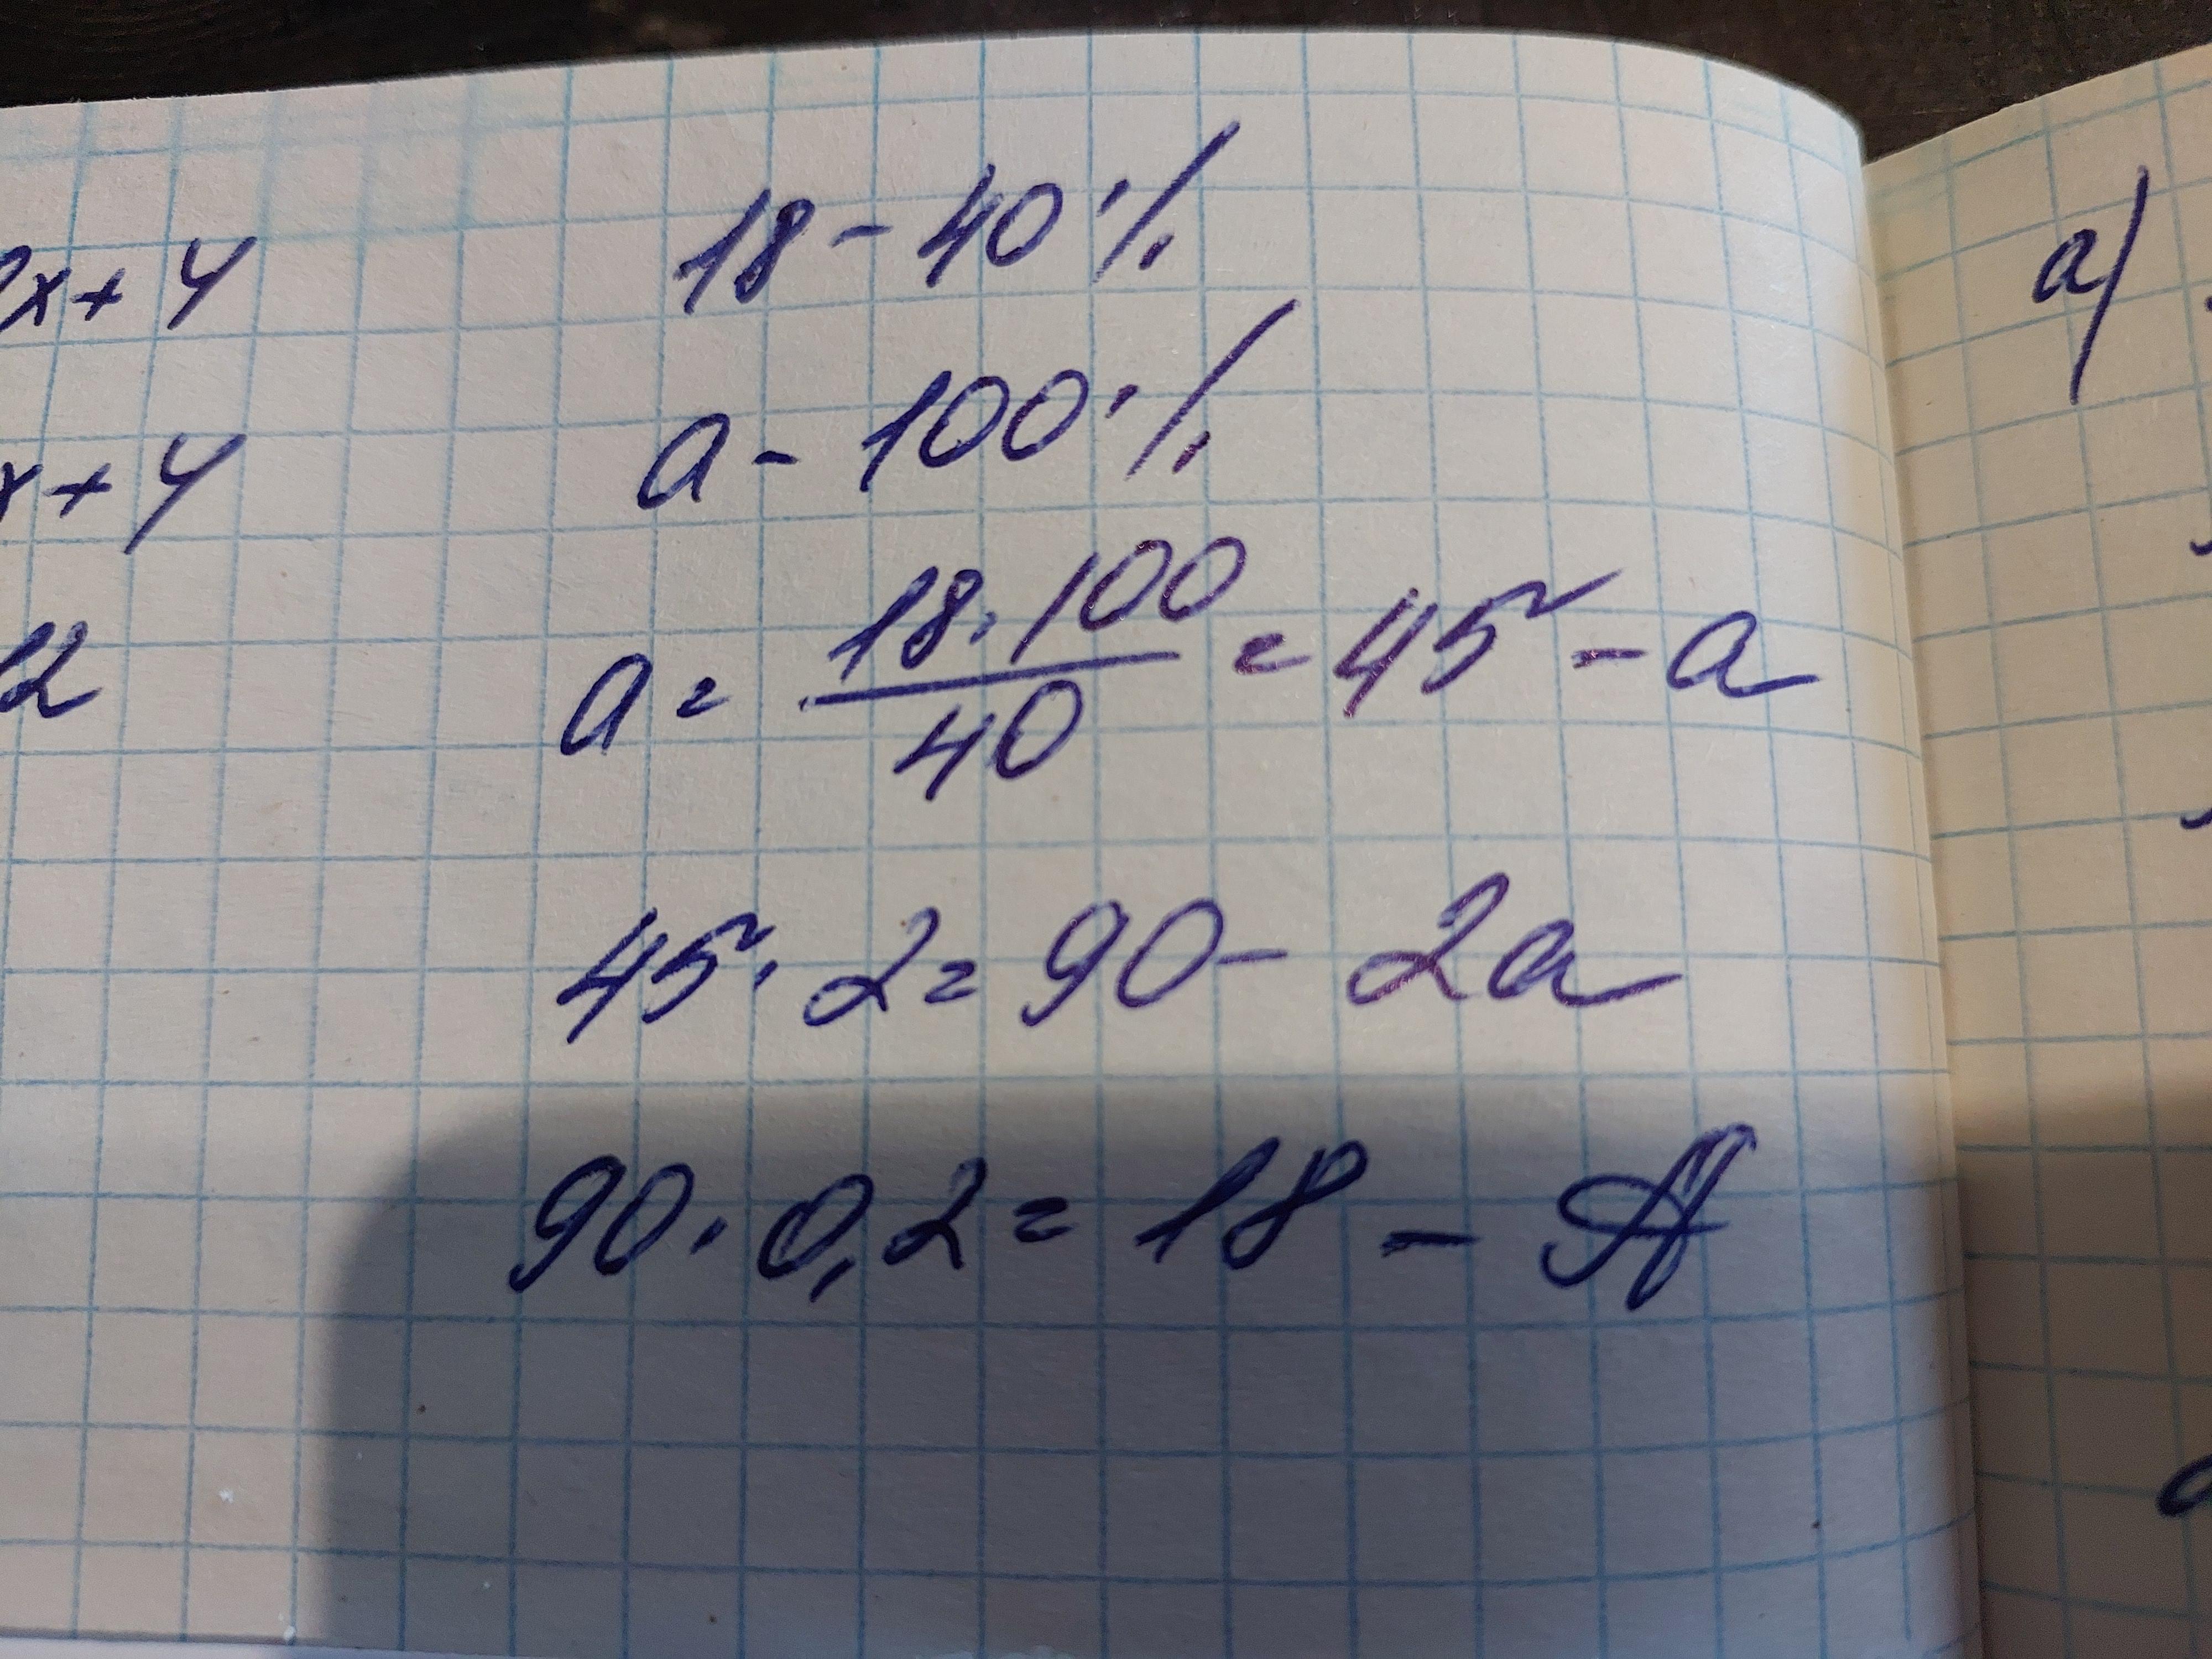 2x + y
x + y
12
18 - 40%
a - 100%
a = 18 · 100 / 40 = 45 - a
45 · 2 = 90 - 2a
90 · 0,2 = 18 - A
a)